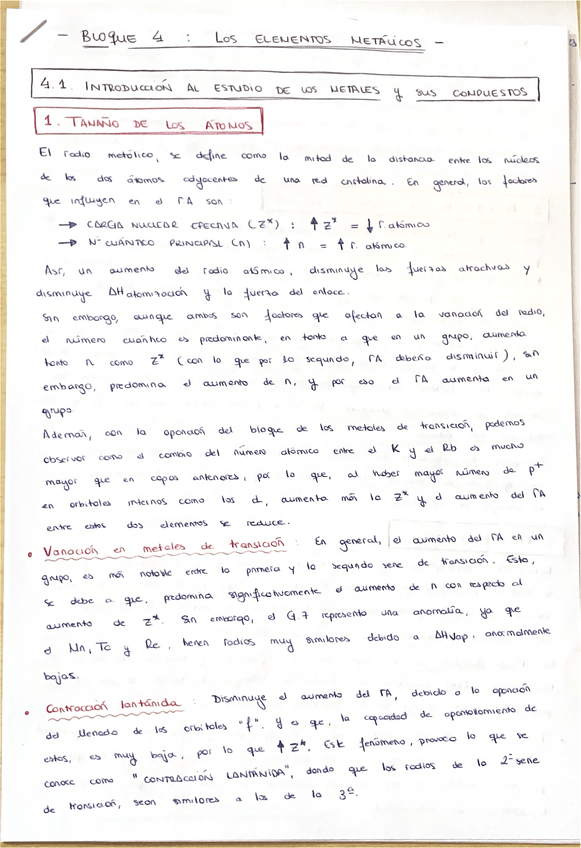 - BLOQUE 4 : LOS ELEMENTOS METÁLICOS -
4.1. INTRODUCCIÓN AL ESTUDIO DE LOS METALES y sus COMPUESTOS
1. TAMAÑO DE LOS ÁTOMOS
El radio metálico, se define como la mitad de la distancia entre los núcleos
de los dos átomos adyacentes de una red cristalina. En general, los factores
que influyen en el rA son:
→ CARGA NUCLEAR EFECTIVA (Z*) : ↑ Z* = ↓ r. atómico
→ Nº CUÁNTICO PRINCIPAL (n) : ↑ n = ↑ r. atómico
Así, un aumento del radio atómico, disminuye las fuerzas atractivas y
disminuye ΔHatomización y la fuerza del enlace.
Sin embargo, aunque ambos son factores que afectan a la variación del radio,
el número cuántico es predominante, en tanto a que en un grupo, aumenta
tanto n como Z* (con lo que por lo segundo, rA debería disminuir), sin
embargo, predomina el aumento de n, y por eso el rA aumenta en un
grupo
Además, con la aparición del bloque de los metales de transición, podemos
observar como el cambio del número atómico entre el K y el Rb es mucho
mayor que en capas anteriores, por lo que, al haber mayor número de p+
en orbitales internos como los d, aumenta más la Z* y el aumento del rA
entre estos dos elementos se reduce.
• Variación en metales de transición : En general, el aumento del rA en un
grupo, es más notable entre la primera y la segunda serie de transición. Esto,
se debe a que, predomina significativamente el aumento de n con respecto al
aumento de Z*. Sin embargo, el G7 representa una anomalía, ya que
el Mn, Tc y Re, tienen radios muy similares debido a ΔHvap. anormalmente
bajas.
• Contracción lantánida : Disminuye el aumento del rA, debido a la aparición
del llenado de los orbitales "f". Ya que, la capacidad de apantallamiento de
estos, es muy baja, por lo que ↑ Z*. Este fenómeno, provoca lo que se
conoce como "CONTRACCIÓN LANTÁNIDA", dando que los radios de la 2ª serie
de transición, sean similares a los de la 3ª.